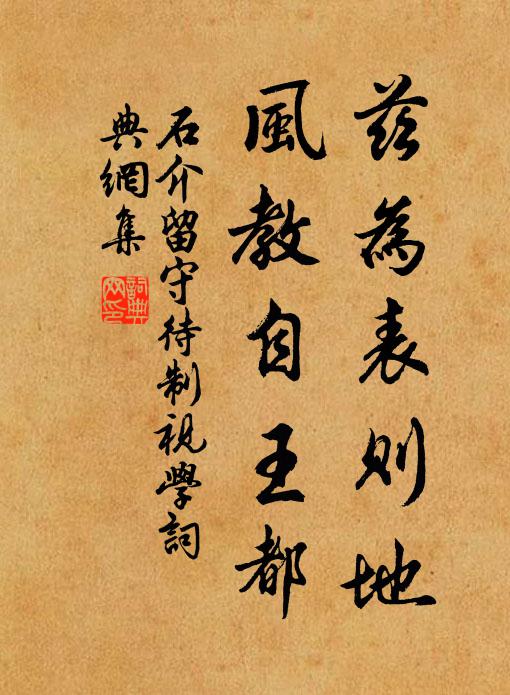 茲為表則地
風教自王都
石介留守待制視學詞
典網集
詞典網印